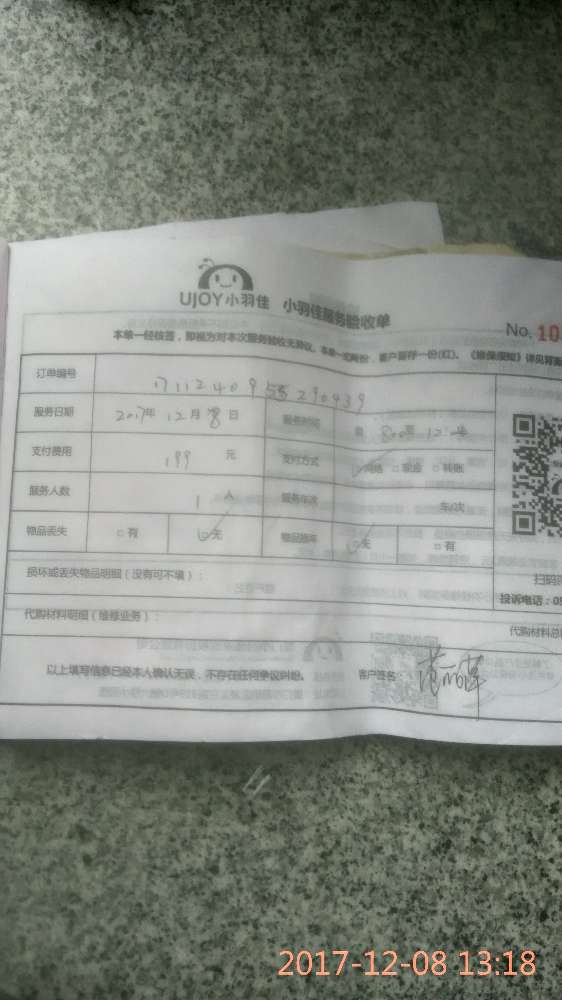 UJOY小羽佳 小羽佳服务验收单
No. 10
本单一经核签，即视为对本次服务验收无异议。本单一式两份，客户留存一份(红)。《维保须知》详见背面
订单编号 17112409
服务日期 2017年 12月 8日 服务时间
支付费用 199 元 支付方式 网络 □现金 □转账
服务人数 1 人 服务车次 车/次
物品丢失 □有 □无 物品损坏 □无 □有
扫码
损坏或丢失物品明细（没有可不填）：
投诉电话：05
代购材料明细（维修业务）： 代购材料总
以上填写信息已经本人确认无误，不存在任何争议纠纷。 客户签名：
2017-12-08 13:18